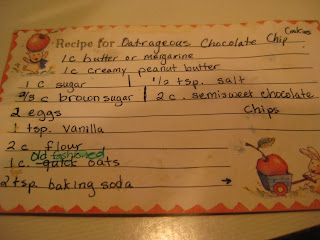 Cookies
Recipe for Oatrageous Chocolate Chip
1 c butter or margarine
1 c creamy peanut butter
1 c sugar 1/2 tsp. salt
2/3 c brown sugar 2 c. semisweet chocolate
2 eggs chips
1 tsp. vanilla
2 c flour
old fashioned
1 c. quick oats
2 tsp. baking soda →